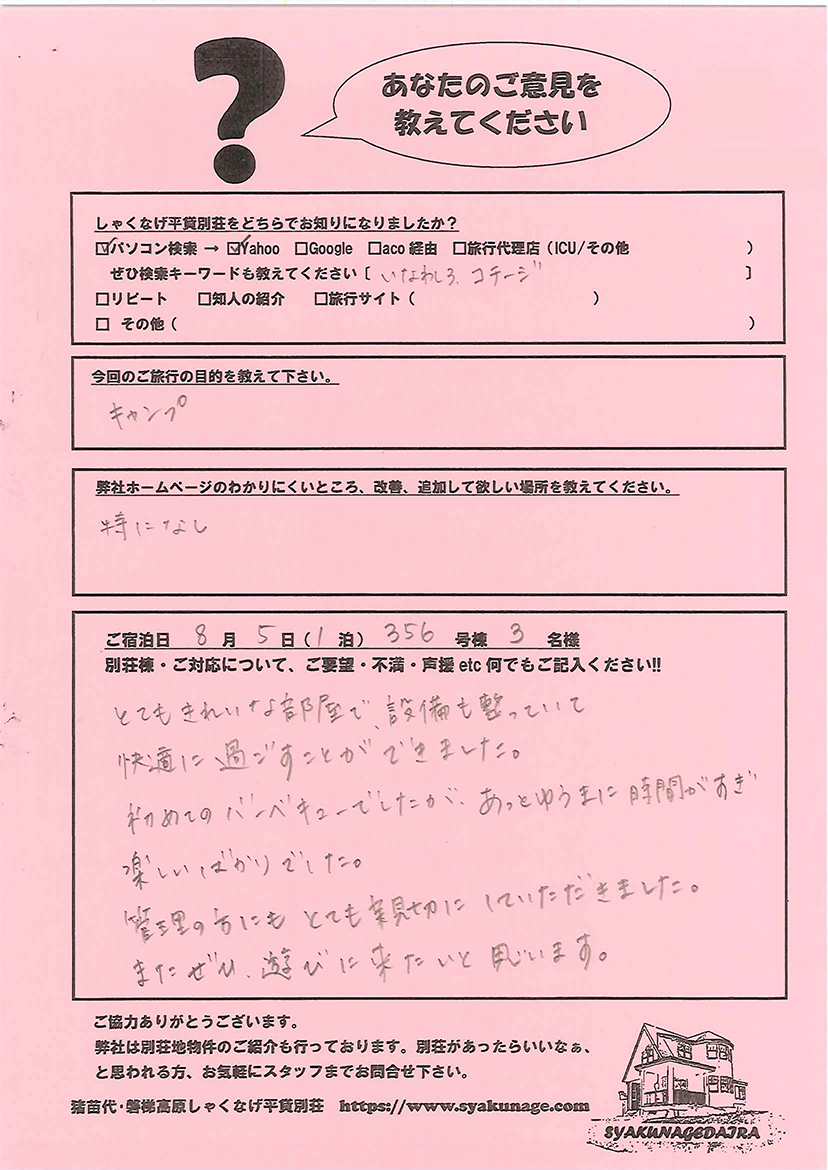 ?
あなたのご意見を
教えてください
しゃくなげ平貸別荘をどちらでお知りになりましたか?
☑パソコン検索 → ☑Yahoo □Google □aco 経由 □旅行代理店(ICU/その他 )
ぜひ検索キーワードも教えてください [ いなわしろ、コテージ ]
□リピート □知人の紹介 □旅行サイト( )
□ その他( )
今回のご旅行の目的を教えて下さい。
キャンプ
弊社ホームページのわかりにくいところ、改善、追加して欲しい場所を教えてください。
特になし
ご宿泊日 8 月 5 日(1 泊) 356 号棟 3 名様
別荘棟・ご対応について、ご要望・不満・声援 etc 何でもご記入ください!!
とてもきれいな部屋で、設備も整っていて
快適に過ごすことができました。
初めてのバーベキューでしたが、あっとゆうまに時間がすぎ
楽しいばかりでした。
管理の方にもとても親切にしていただきました。
またぜひ、遊びに来たいと思います。
ご協力ありがとうございます。
弊社は別荘地物件のご紹介も行っております。別荘があったらいいなぁ、
と思われる方、お気軽にスタッフまでお問合せ下さい。
猪苗代・磐梯高原しゃくなげ平貸別荘 https://www.syakunage.com
SYAKUNAGEDAIRA